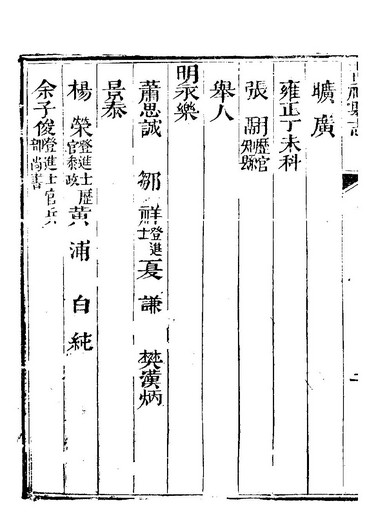 曠廣
雍正丁未科
張 歷官知縣
舉人
明永樂
蕭思誠 鄒祥登進士 夏謙 樊漢炳
景泰
楊榮登進士歷官叅政 黃浦 白純
余子俊登進士官兵部尚書